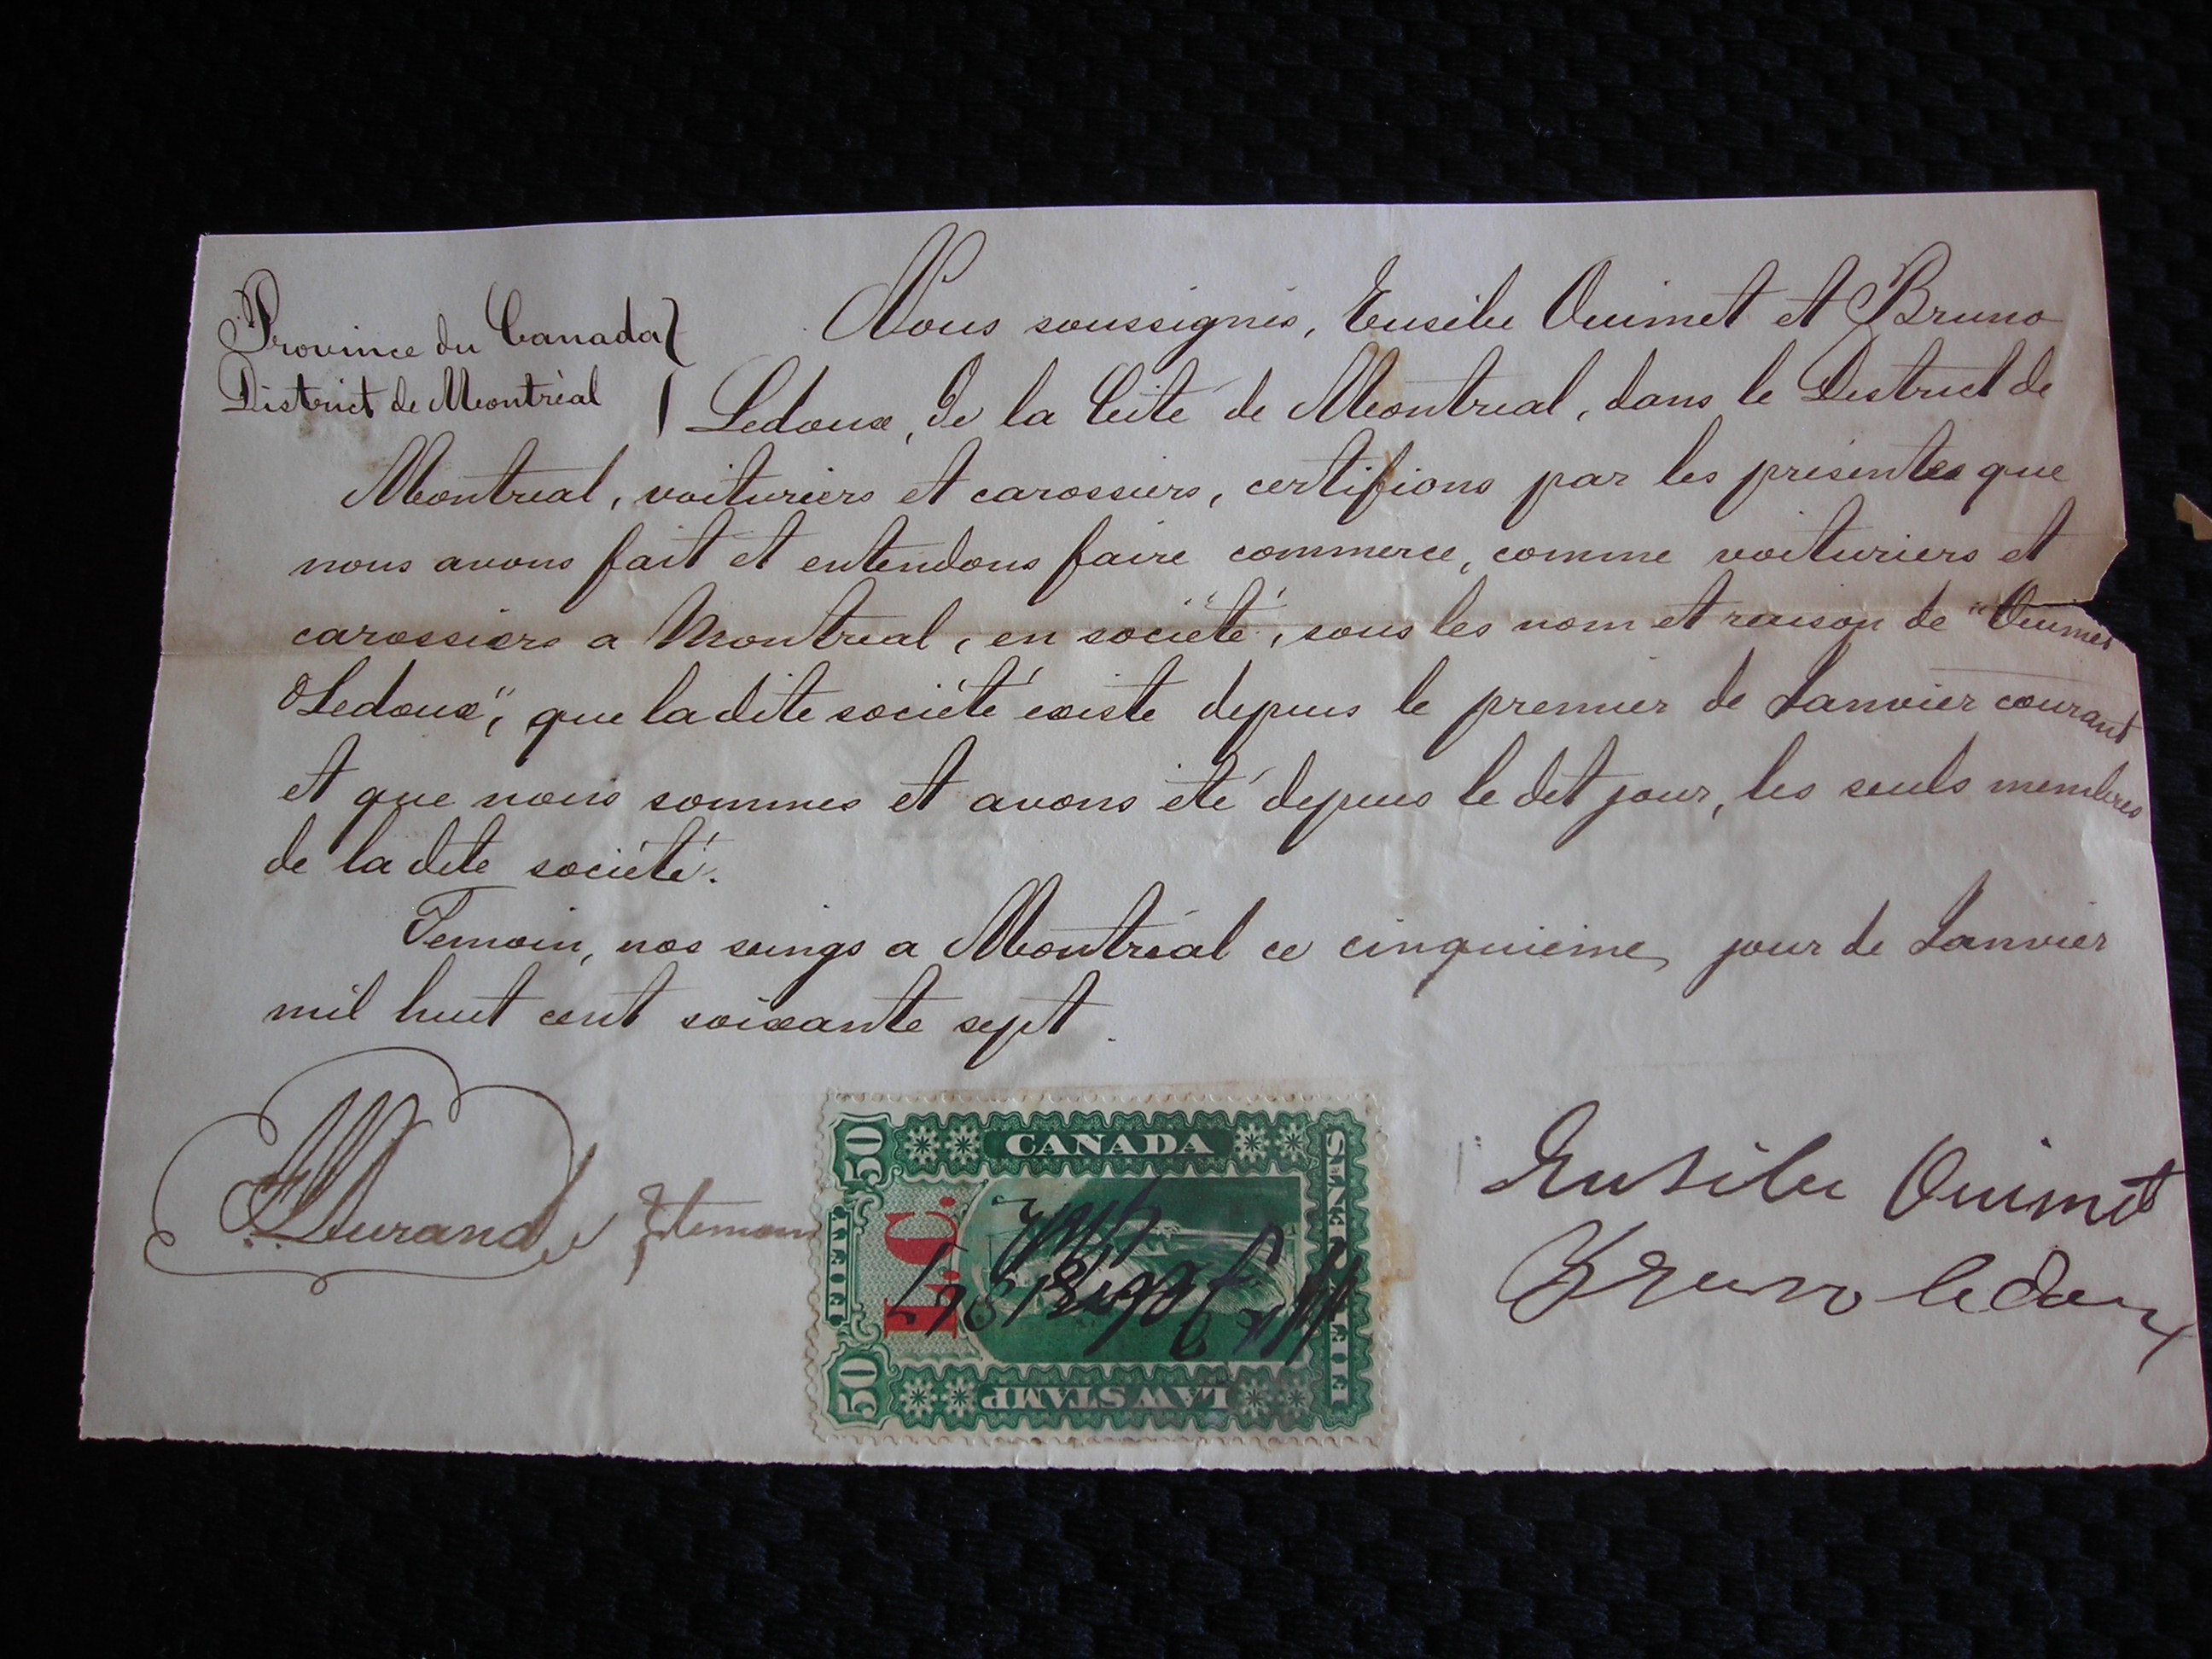 Province du Canada
District de Montréal
Nous soussignés, Eusèbe Ouimet et Bruno
Ledoux, de la Cité de Montreal, dans le District de
Montreal, voituriers et carossiers, certifions par les présentes que
nous avons fait et entendons faire commerce, comme voituriers et
carossiers a Montreal, en société, sous les nom et raison de "Ouimet
& Ledoux", que la dite société existe depuis le premier de Janvier courant
et que nous sommes et avons été depuis le dit jour, les seuls membres
de la dite société.
Temoin, nos seings a Montréal ce cinquieme jour de Janvier
mil huit cent soixante sept.
Durand temoin
Eusèbe Ouimet
Bruno ledoux
CANADA
50
FIFTY CENTS
L.C.
50
FIFTY CENTS
LAW STAMP